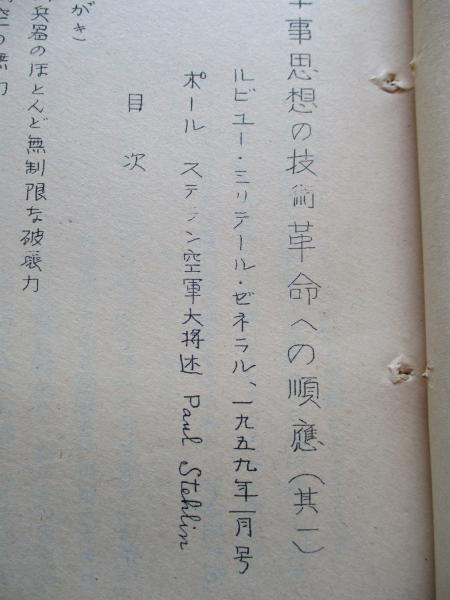 事思想の技術革命への順應(其一)
ルビュー・ミリテール・ゼネラル、一九五九年一月号
ポール ステラン空軍大将述 Paul Stehlin
目次
がき)
兵器のほとんど無制限な破壊力